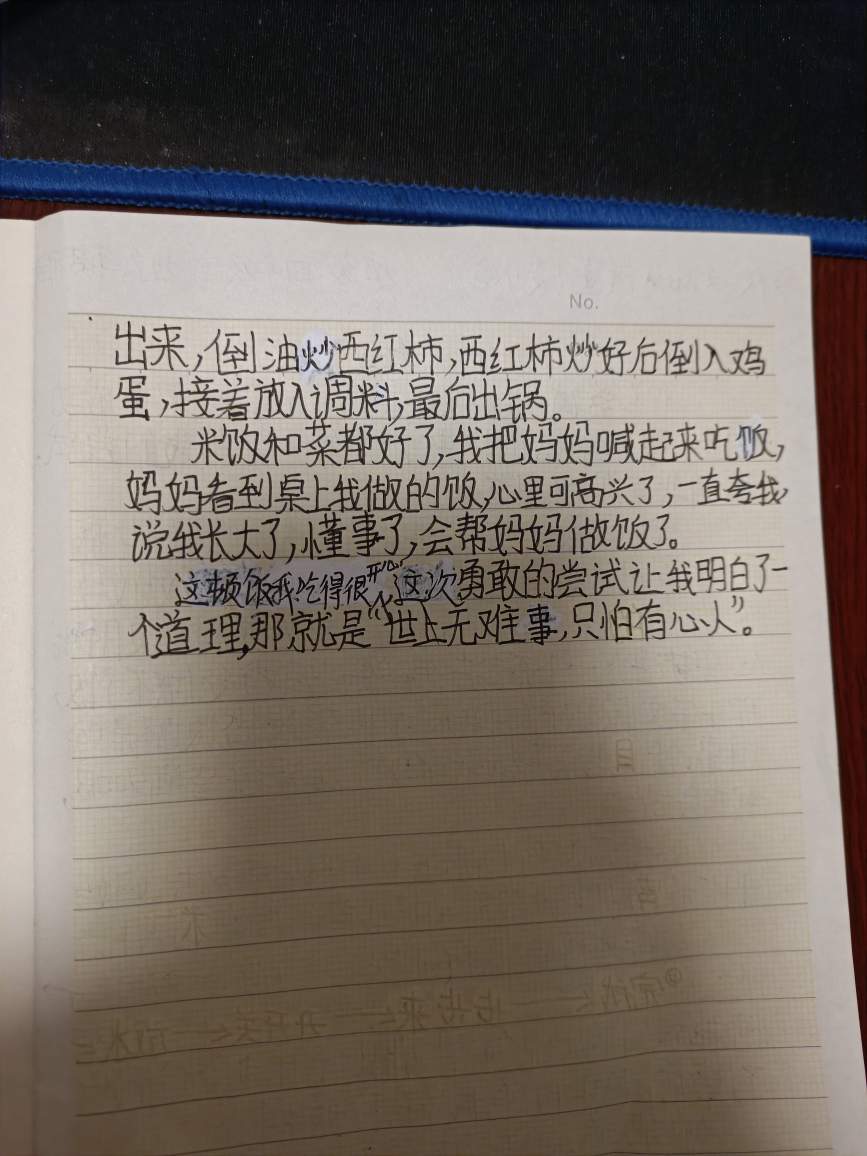 No.
出来,倒油炒西红柿,西红柿炒好后倒入鸡
蛋,接着放入调料,最后出锅。
米饭和菜都好了,我把妈妈喊起来吃饭,
妈妈看到桌上我做的饭,心里可高兴了,一直夸我,
说我长大了,懂事了,会帮妈妈做饭了。
这顿饭我吃得很开心,这次勇敢的尝试让我明白了一
个道理,那就是“世上无难事,只怕有心人”。